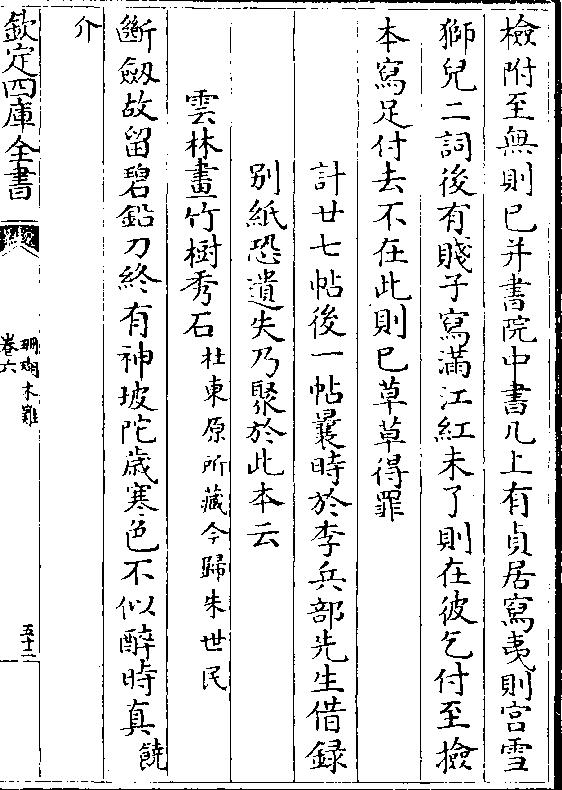 檢附至無則已并書院中書几上有貞居寫夷則宮雪
獅兒二詞後有賤子寫滿江紅未了則在彼乞付至撿
本寫足付去不在此則已草草得罪
計廿七帖後一帖曩時於李兵部先生借録
別紙恐遺失乃聚於此本云
雲林畫竹樹秀石杜東原所藏今歸朱世民
斷劔故留碧鉛刀終有神坡陀歲寒色不似醉時真饒
介
欽定四庫全書
珊瑚木難
卷六
五十二